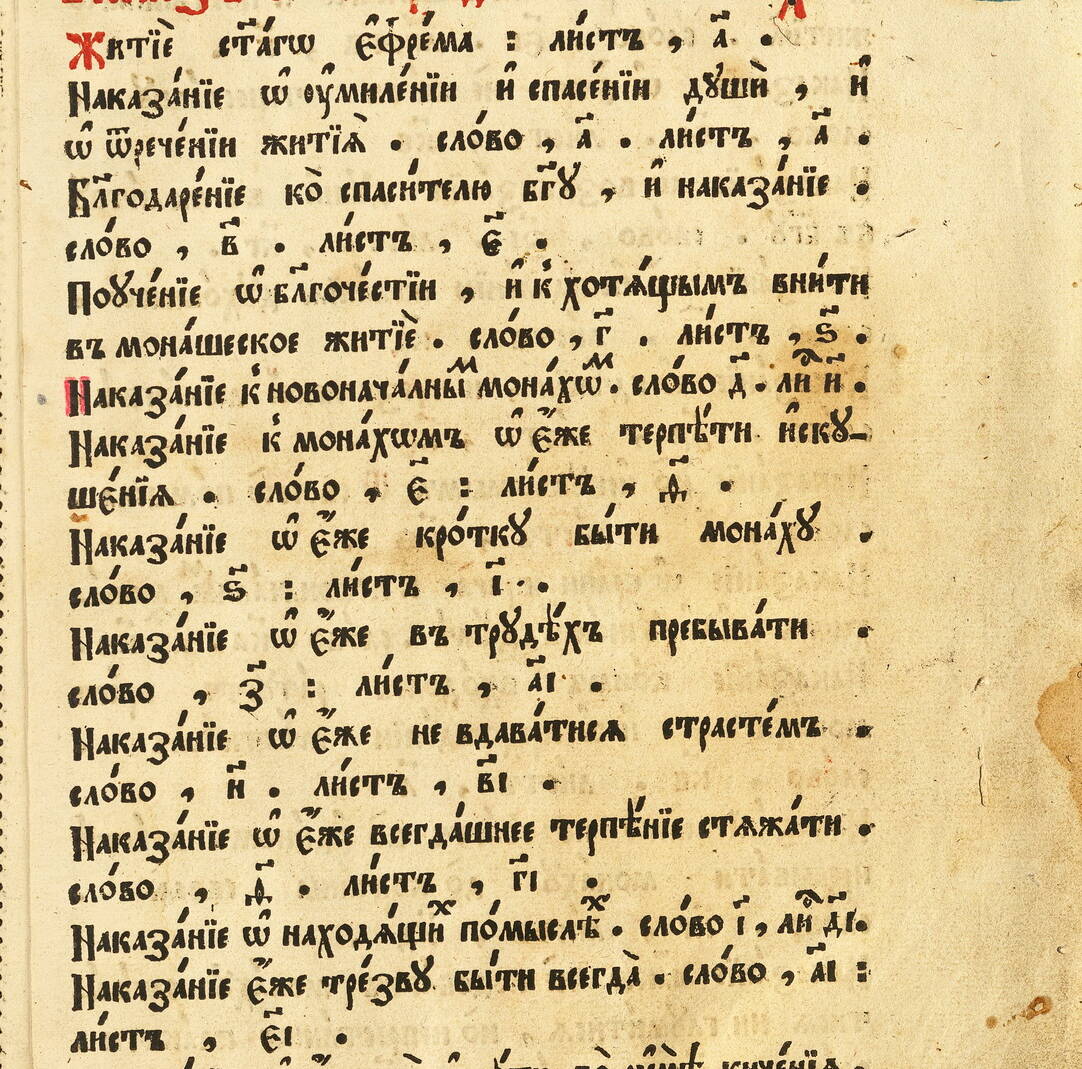 Житїѐ ст҃а́гѡ є҆фре́ма : ли́стъ , а҃ .
Наказа́нїе ѡ҆ оу҆миле́нїи и҆ спасе́нїи дꙋшѝ , и҆
ѡ҆ ѿрече́нїи житїѧ̀ . сло́во , а҃ . ли́стъ , а҃ .
Бл҃годаре́нїе ко̀ спаси́телю бг҃ꙋ , и҆ наказа́нїе .
сло́во , в҃ . ли́стъ , є҃ .
Поꙋче́нїе ѡ҆ бл҃гоче́стїи , и҆ к̾ хотѧ́щымъ вни́ти
въ мона́шеское житїѐ . сло́во , г҃ . ли́стъ , ѕ҃ .
Наказа́нїе к̾ новонача́лныⷨ мона́хѡⷨ . сло́во д҃ . лиⷭ҇ и҃ .
Наказа́нїе к̾ мона́хѡмъ ѡ҆ є҆́же терпѣ́ти и҆скꙋ-
ше́нїѧ . сло́во , є҃ : ли́стъ , ѳ҃ .
Наказа́нїе ѡ҆ є҆́же кро́ткꙋ бы́ти мона́хꙋ .
сло́во , ѕ҃ : ли́стъ , і҃ .
Наказа́нїе ѡ҆ є҆́же въ трꙋдѣ́хъ пребыва́ти .
сло́во , з҃ : ли́стъ , а҃і .
Наказа́нїе ѡ҆ є҆́же не вдава́тисѧ страсте́мъ .
сло́во , и҃ . ли́стъ , в҃і .
Наказа́нїе ѡ҆ є҆́же всегда́шнее терпѣ́нїе стѧжа́ти .
сло́во , ѳ҃ . ли́стъ , г҃і .
Наказа́нїе ѡ҆ находѧ́щиⷯ по́мыслѣⷯ . сло́во і҃ , лиⷭ҇ д҃і .
Наказа́нїе є҆́же тре́звꙋ бы́ти всегда̀ . сло́во , а҃і :
ли́стъ , є҃і .